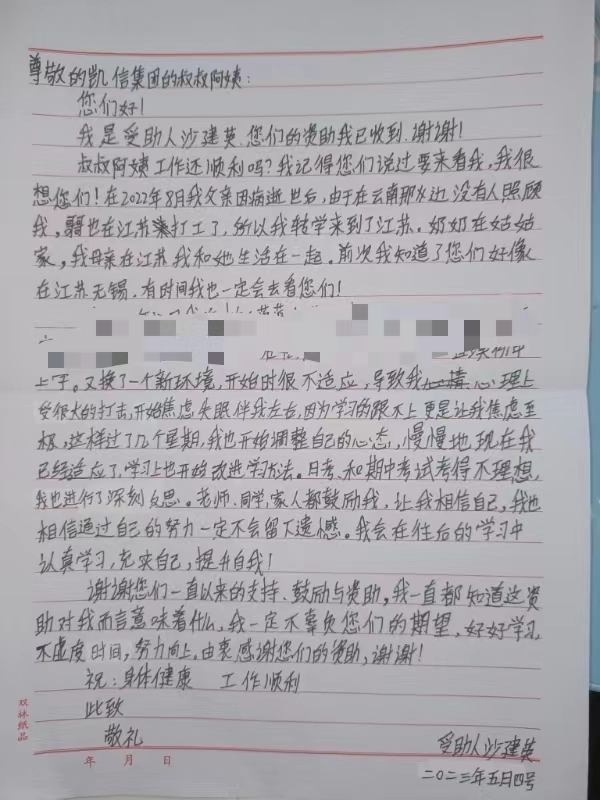 尊敬的凯信集团的叔叔阿姨：
您们好！
我是受助人沙建英.您们的资助我已收到.谢谢！
叔叔阿姨工作还顺利吗？我记得您们说过要来看我，我很
想您们！在2022年8月我父亲因病逝世后，由于在云南那水边没有人照顾
我，也在江苏打工了，所以我转学来到了江苏。奶奶在姑姑
家，我母亲在江苏我和她生活在一起。前次我知道了您们好像
在江苏无锡.有时间我也一定会去看您们！
上学。又换了一个新环境，开始时很不适应，导致我心理上
受很大的打击，开始焦虑失眠伴我左右，因为学习的跟不上更是让我焦虑至
极，这样过了几个星期，我也开始调整自己的心态，慢慢地现在我
已经适应了，学习上也开始改进学习方法。月考、和期中考试考得不理想，
我也进行了深刻反思。老师、同学，家人都鼓励我，让我相信自己，我也
相信通过自己的努力一定不会留下遗憾。我会在往后的学习中
认真学习，充实自己，提升自我！
谢谢您们一直以来的支持、鼓励与资助，我一直都知道这资
助对我而言意味着什么，我一定不辜负您们的期望，好好学习，
不虚度时间，努力向上，由衷感谢您们的资助，谢谢！
祝：身体健康 工作顺利
此致
敬礼
受助人沙建英
二〇二三年五月四号
双妹纸品
年 月 日